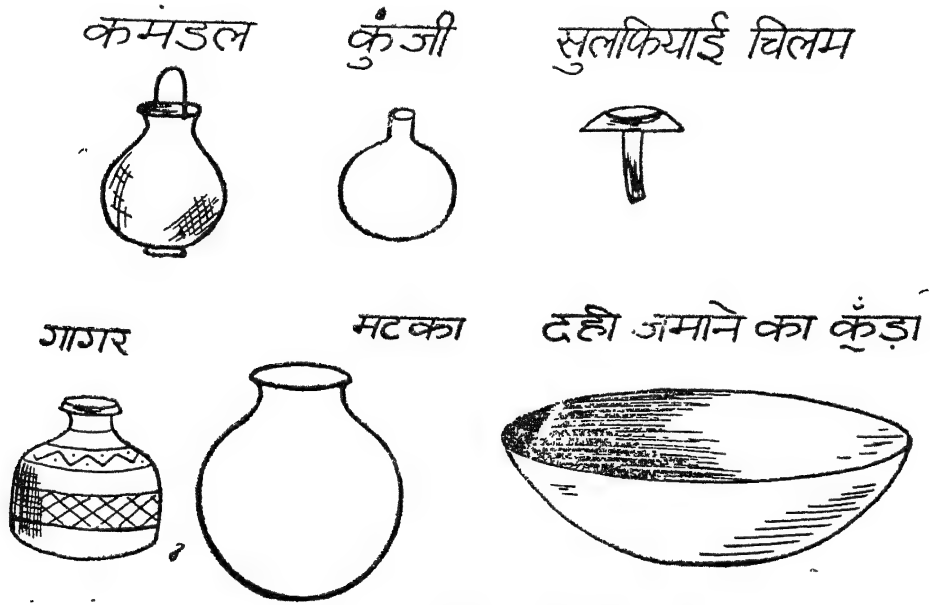 कमंडल
कुंजी
सुलफियाई चिलम
गागर
मटका
दही जमाने का कूँड़ा